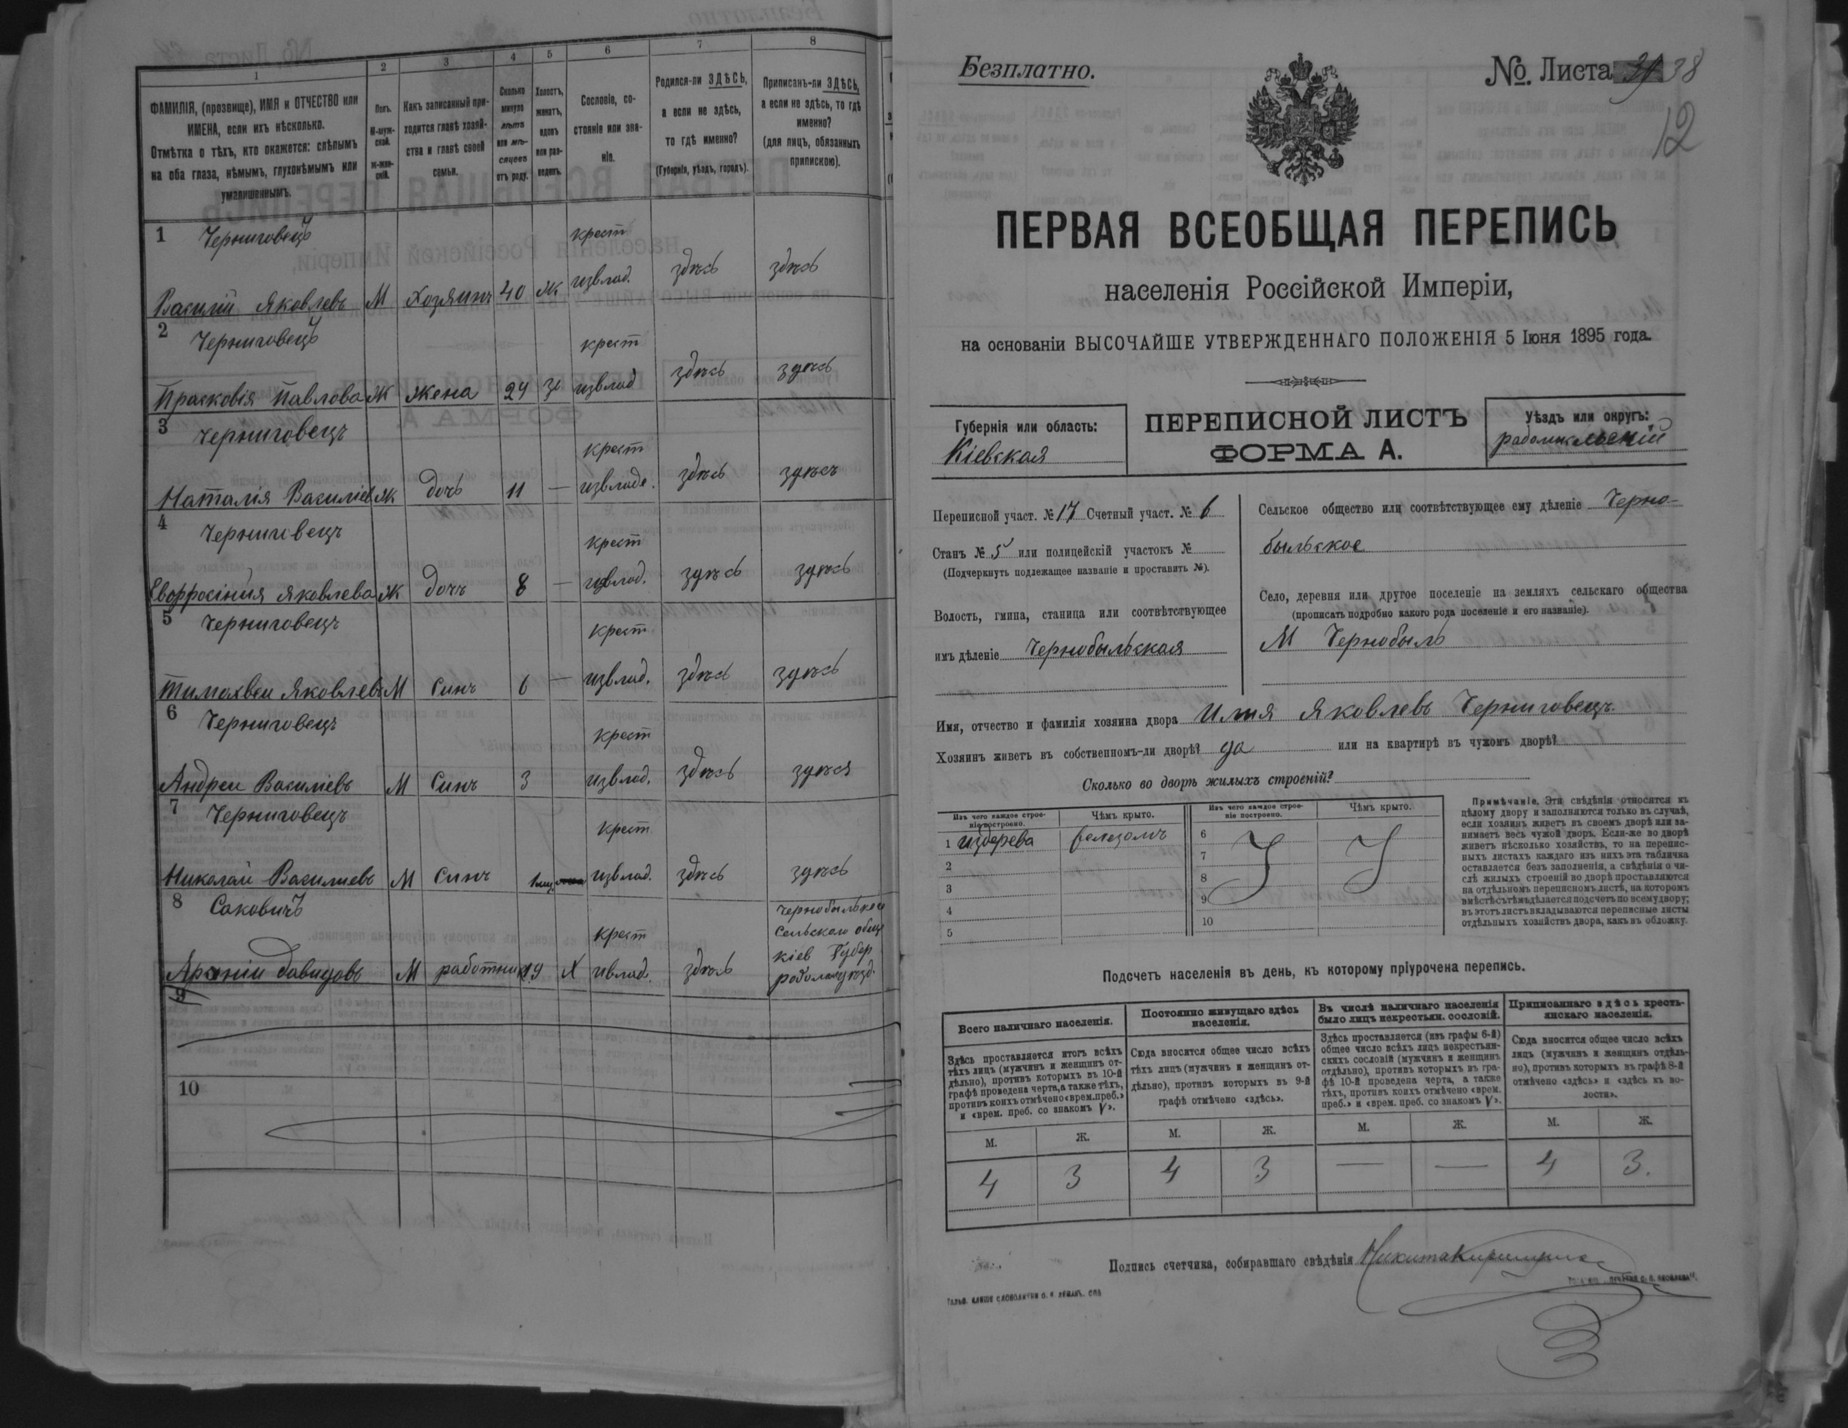 1 2 3 4 5 6 7 8
ФАМИЛІЯ, (прозвище), ИМЯ и ОТЧЕСТВО или
ИМЕНА, если ихъ нѣсколько.
Отмѣтка о тѣхъ, кто окажется: слѣпымъ
на оба глаза, нѣмымъ, глухонѣмымъ или
умалишеннымъ.
Полъ.
М-муж-
ской.
Ж-жен-
скій.
Какъ записанный при-
ходится главѣ хозяй-
ства и главѣ своей
семьи.
Сколько
минуло
лѣтъ
или мѣ-
сяцевъ
отъ роду.
Холостъ,
женатъ,
вдовъ
или раз-
веденъ.
Сословіе, со-
стояніе или зва-
ніе.
Родился-ли ЗДѢСЬ,
а если не здѣсь,
то гдѣ именно?
(Губернія, уѣздъ, городъ).
Приписанъ-ли ЗДѢСЬ,
а если не здѣсь, то гдѣ
именно?
(для лицъ, обязанныхъ
припискою).
1 Черниговецъ крест
Василій Яковлевъ М Хозяинъ 40 ж извлад. здѣсь здѣсь
2 Черниговецъ крест
Прасковія Павлова Ж жена 29 з извлад здѣсь здѣсь
3 Черниговецъ крест
Наталія Василіев ж дочь 11 — извлад. здѣсь здѣсь
4 Черниговецъ крест
Евфросинія Яковлева Ж дочъ 8 — извлад. здѣсь здѣсь
5 Черниговецъ крест
Тимохвеи Яковлевъ М Синъ 6 — извлад. здѣсь здѣсь
6 Черниговецъ крест
Андреи Василіевъ М Синъ 3 извлад. здѣсь здѣсь
7 Черниговецъ крест
Николай Василиевъ М Синъ 1 извлад. здѣсь здѣсь
8 Саковичъ крест
Чернобылькои
Сельского общ
кіев Губер
Давидовъ М работник 19 Х ивлад. здѣсь
9
10
Безплатно.
№ Листа 38
12
ПЕРВАЯ ВСЕОБЩАЯ ПЕРЕПИСЬ
населенія Россійской Имперіи,
на основаніи ВЫСОЧАЙШЕ УТВЕРЖДЕННАГО ПОЛОЖЕНІЯ 5 Іюня 1895 года.
Губернія или область:
Кіевская
ПЕРЕПИСНОЙ ЛИСТЪ
ФОРМА А.
Уѣздъ или округъ:
радомисльскій
Переписной участ. № 17 Счетный участ. № 6
Станъ № 5 или полицейскій участокъ №
(Подчеркнуть подлежащее названіе и проставить №).
Волость, гмина, станица или соотвѣтствующее
имъ дѣленіе Чернобыльская
Сельское общество или соотвѣтствующее ему дѣленіе Черно-
быльское
Село, деревня или другое поселеніе на земляхъ сельскаго общества
(прописать подробно какого рода поселеніе и его названіе).
М Чернобыль
Имя, отчество и фамилія хозяина двора Илия Яковлевъ Черниговецъ.
Хозяинъ живетъ въ собственномъ-ли дворѣ? да или на квартирѣ въ чужомъ дворѣ?
Сколько во дворѣ жилыхъ строеній?
Изъ чего каждое строе-
ніе построено.
Чѣмъ крыто.
Изъ чего каждое строе-
ніе построено.
Чѣмъ крыто.
1 издерева
2
3
4
5
6
7
8
9
10
Примѣчаніе. Эти свѣдѣнія относятся къ
цѣлому двору и заполняются только въ случаѣ,
если хозяинъ живетъ въ своемъ дворѣ или за-
нимаетъ весь чужой дворъ. Если-же во дворѣ
живетъ нѣсколько хозяйствъ, то на перепис-
ныхъ листахъ каждаго изъ нихъ эта табличка
оставляется безъ заполненія, а свѣдѣнія о чи-
слѣ жилыхъ строеній во дворѣ проставляются
на отдѣльномъ переписномъ листѣ, на которомъ
вмѣстѣ съ тѣмъ дѣлается подсчетъ по всему двору;
въ этотъ листъ вкладываются переписные листы
отдѣльныхъ хозяйствъ двора, какъ въ обложку.
Подсчетъ населенія въ день, къ которому пріурочена перепись.
Всего наличнаго населенія.
Постоянно живущаго здѣсь
населенія.
Въ числѣ наличнаго населенія
было лицъ некрестьян. сословій.
Приписаннаго здѣсь кресть-
янскаго населенія.
Здѣсь проставляется итогъ всѣхъ
тѣхъ лицъ (мужчинъ и женщинъ от-
дѣльно), противъ которыхъ въ 10-й
графѣ проведена черта, а также тѣхъ,
противъ коихъ отмѣчено «врем. преб.»
и «врем. преб. со знакомъ V».
Сюда вносится общее число всѣхъ
тѣхъ лицъ (мужчинъ и женщинъ от-
дѣльно), противъ которыхъ въ 9-й
графѣ отмѣчено «здѣсь».
Здѣсь проставляется (изъ графы 6-й)
общее число всѣхъ лицъ некрестьян-
скихъ сословій (мужчинъ и женщинъ
отдѣльно), противъ которыхъ въ гра-
фѣ 10-й проведена черта, а также
тѣхъ, противъ коихъ отмѣчено «врем.
преб.» и «врем. преб. со знакомъ V».
Сюда вносится общее число всѣхъ
лицъ (мужчинъ и женщинъ отдѣль-
но), противъ которыхъ въ графѣ 8-й
отмѣчено «здѣсь» и «здѣсь въ во-
лости».
М. Ж. М. Ж. М. Ж. М. Ж.
4 3 4 3 — — 4 3.
Подпись счетчика, собиравшаго свѣдѣнія Никита